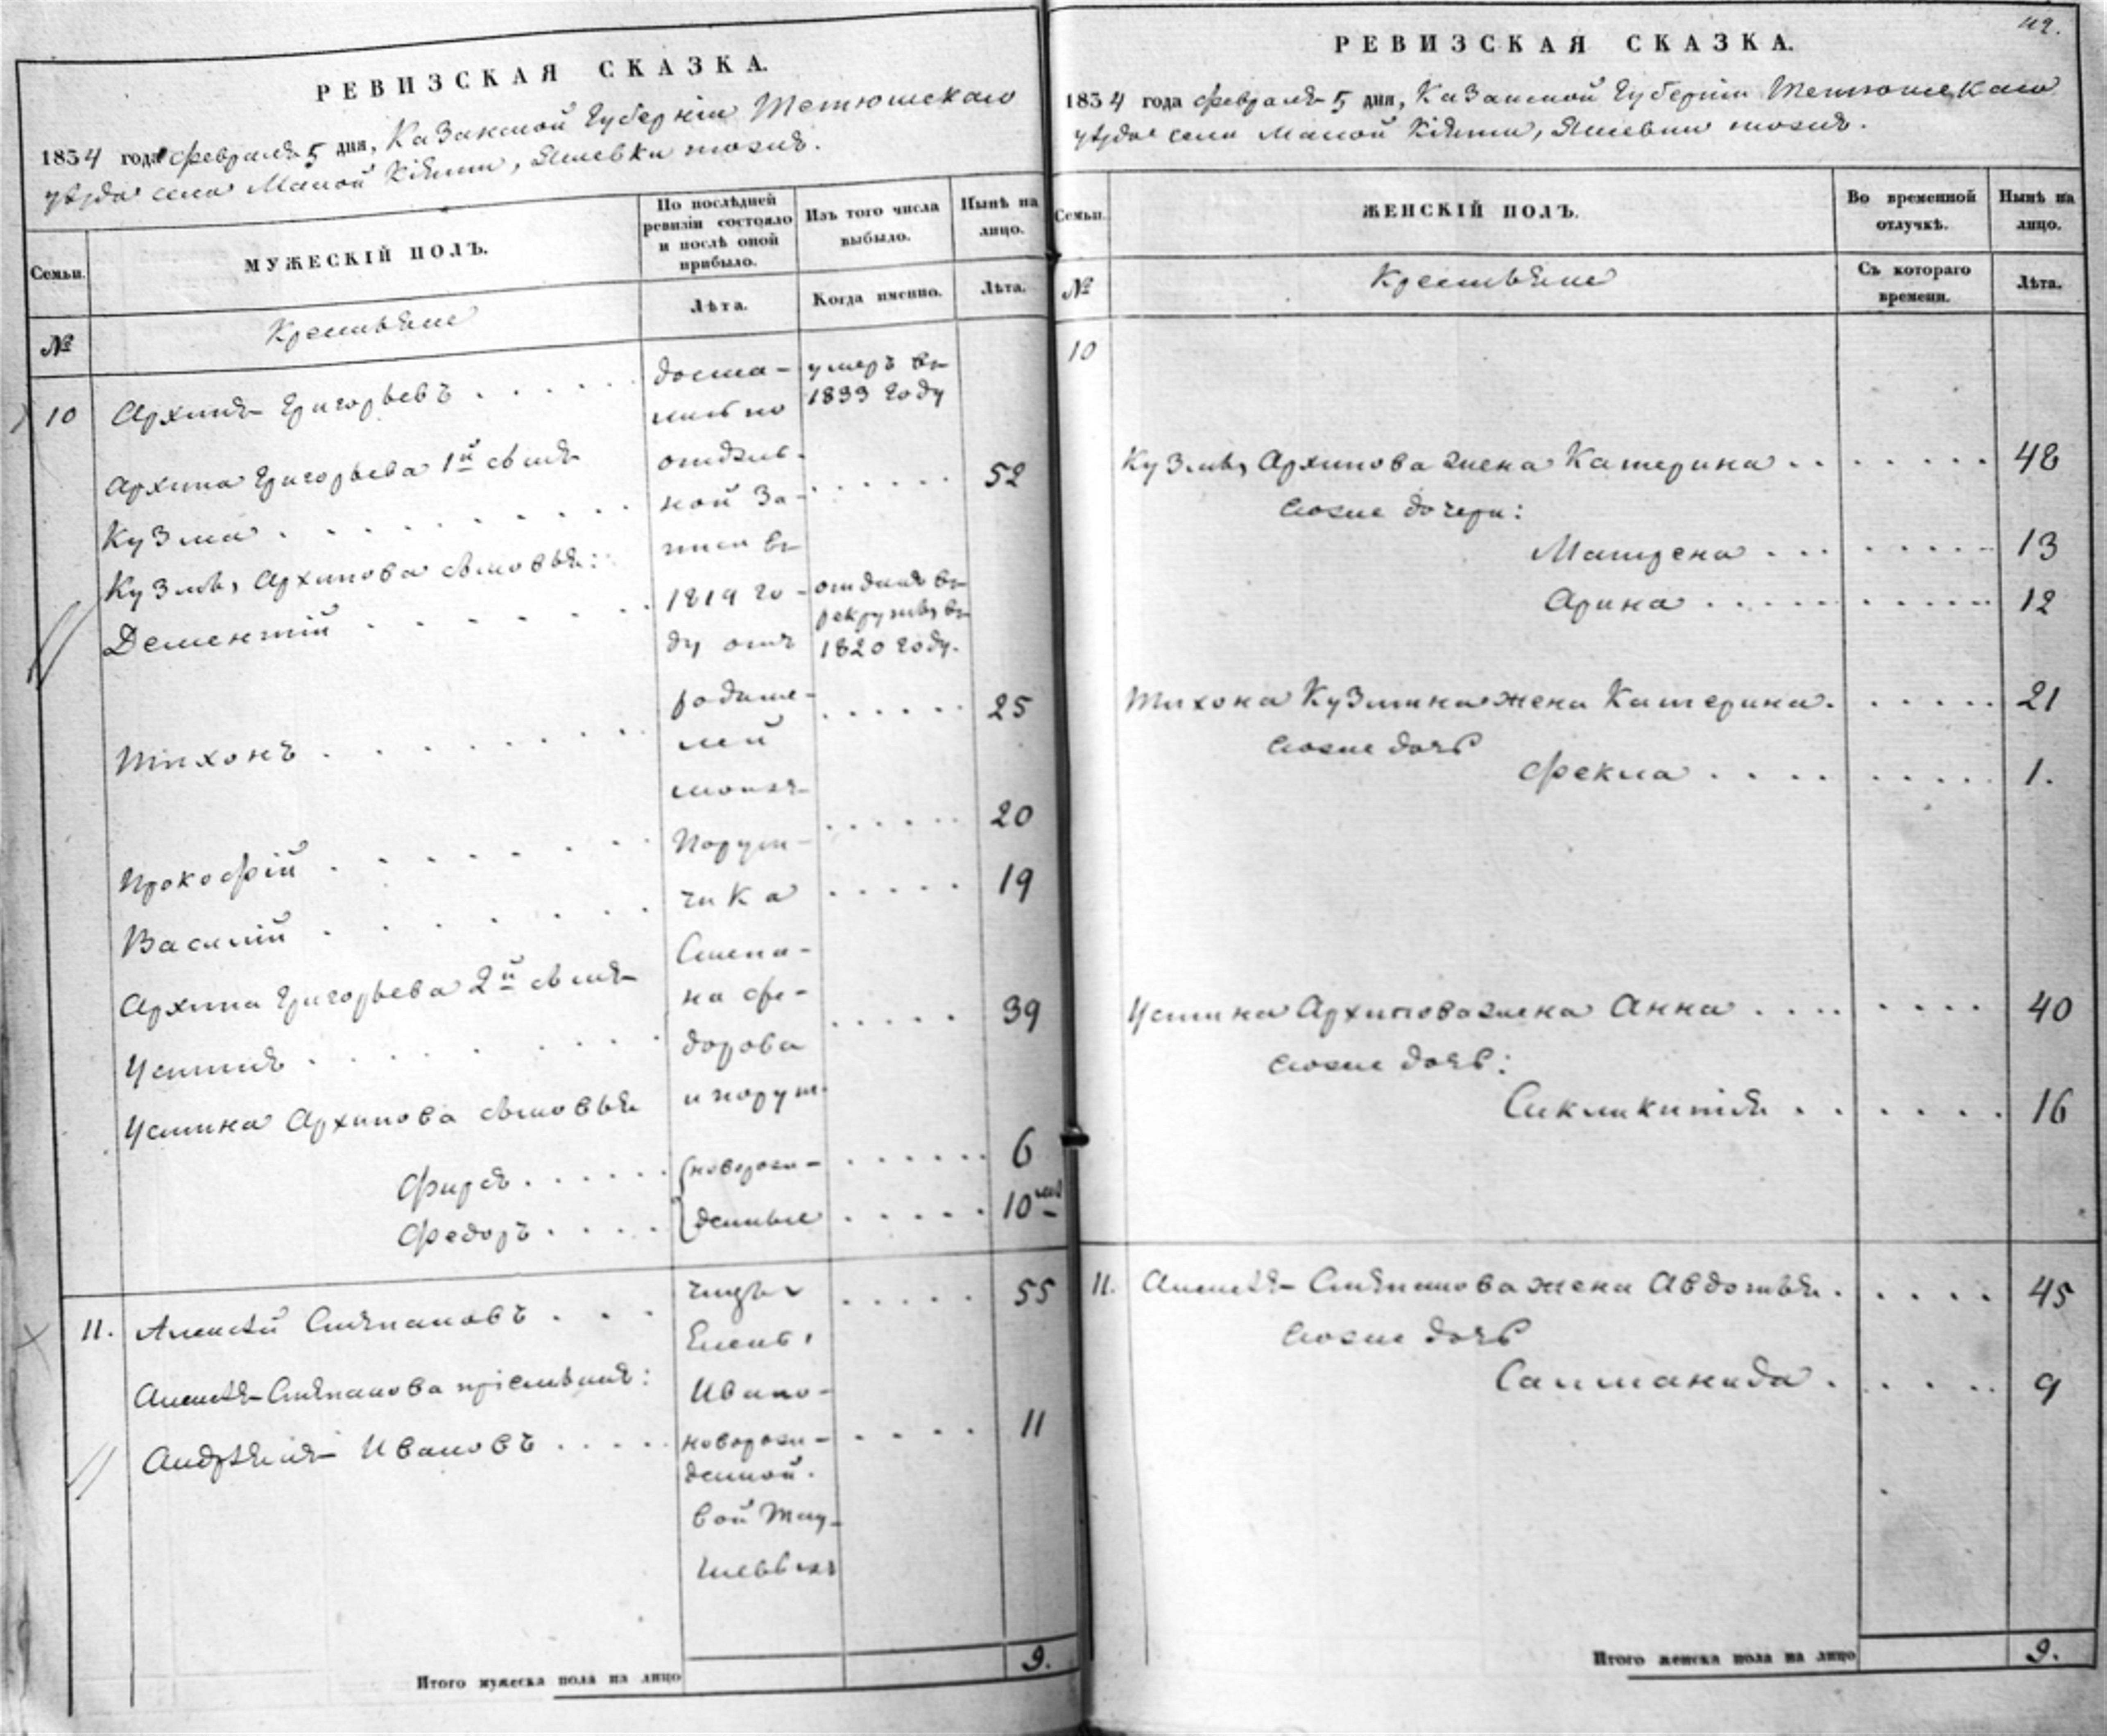 РЕВИЗСКАЯ СКАЗКА.
1834 года февраля 5 дня, Казанской Губернiи Тетюшскаго
уѣзда села Малой
МУЖЕСКІЙ ПОЛЪ.
Семьи.
№
Крестьяне
По послѣдней ревизіи состояло и послѣ оной прибыло.
Лѣта.
Изъ того числа выбыло.
Когда именно.
Нынѣ на лицо.
Лѣта.
10 Архипъ Григорьевъ доста- умеръ въ
лись по 1833 году
Архипа Григорьева 1й сынъ отдѣль-
Кузма ной за- 52
Кузмы Архипова сыновья: писи въ
Дементій 1819 го- отданъ въ
ду отъ рекруты въ
1820 году.
Тихонъ родите- 25
лей
моихъ
Прокофій Порут- 20
Василій чика 19
Архипа Григорьева 2й сынъ Степа-
на Фе-
Устинъ дорова 39
Устина Архипова сыновья и порут-
Фирсъ новорож- 6
Федоръ денные 10 мес
11. Алексѣй Степановъ чицы 55
Елены
Алексѣя Степанова пріемышъ: Ивано-
Андреянъ Ивановъ новорож- 11
денной.
вой
Итого мужеска пола на лицо 9.
42.
РЕВИЗСКАЯ СКАЗКА.
1834 года февраля 5 дня, Казанской Губерніи Тетюшскаго
уѣзда села Малой
Семьи.
№
ЖЕНСКІЙ ПОЛЪ.
Крестьяне
Во временной отлучкѣ.
Съ котораго времени.
Нынѣ на лицо.
Лѣта.
10
Кузмы Архипова жена Катерина 48
ихъ дочери:
Матрена 13
Арина 12
Тихона Кузмина жена Катерина. 21
ихъ дочь
Фекла 1.
Устина Архипова жена Анна 40
ихъ дочь:
Сикликитія 16
11. Алексѣя Степанова жена Авдотья. 45
ихъ дочь
9
Итого женска пола на лицо 9.